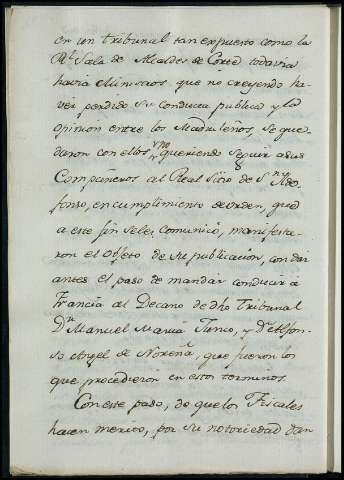 en un tribunal tan expuesto como la
Rl. Sala de Alcaldes de Corte todavia
havia Ministros que no creyendo ha-
ver perdido su conducta publica y la
opinion entre los Madrileños, se que
daron con ellos, y no queriendo seguir a sus
Compañeros al Real Sitio de Sn. Yldefonso,
en cumplimiento de orden, que
a este fin se les comunicó, manifesta-
ron el objeto de su publicacion, con dar
antes el paso de mandar conducir á
Francia al Decano de dho Tribunal
Dn. Manuel Maria Junco, y Dn. Alfon-
so Angel de Noreña, que fueron los
que procedieron en estos terminos.
Con este paso, de que los Fiscales
hacen merito, por su notoriedad dan